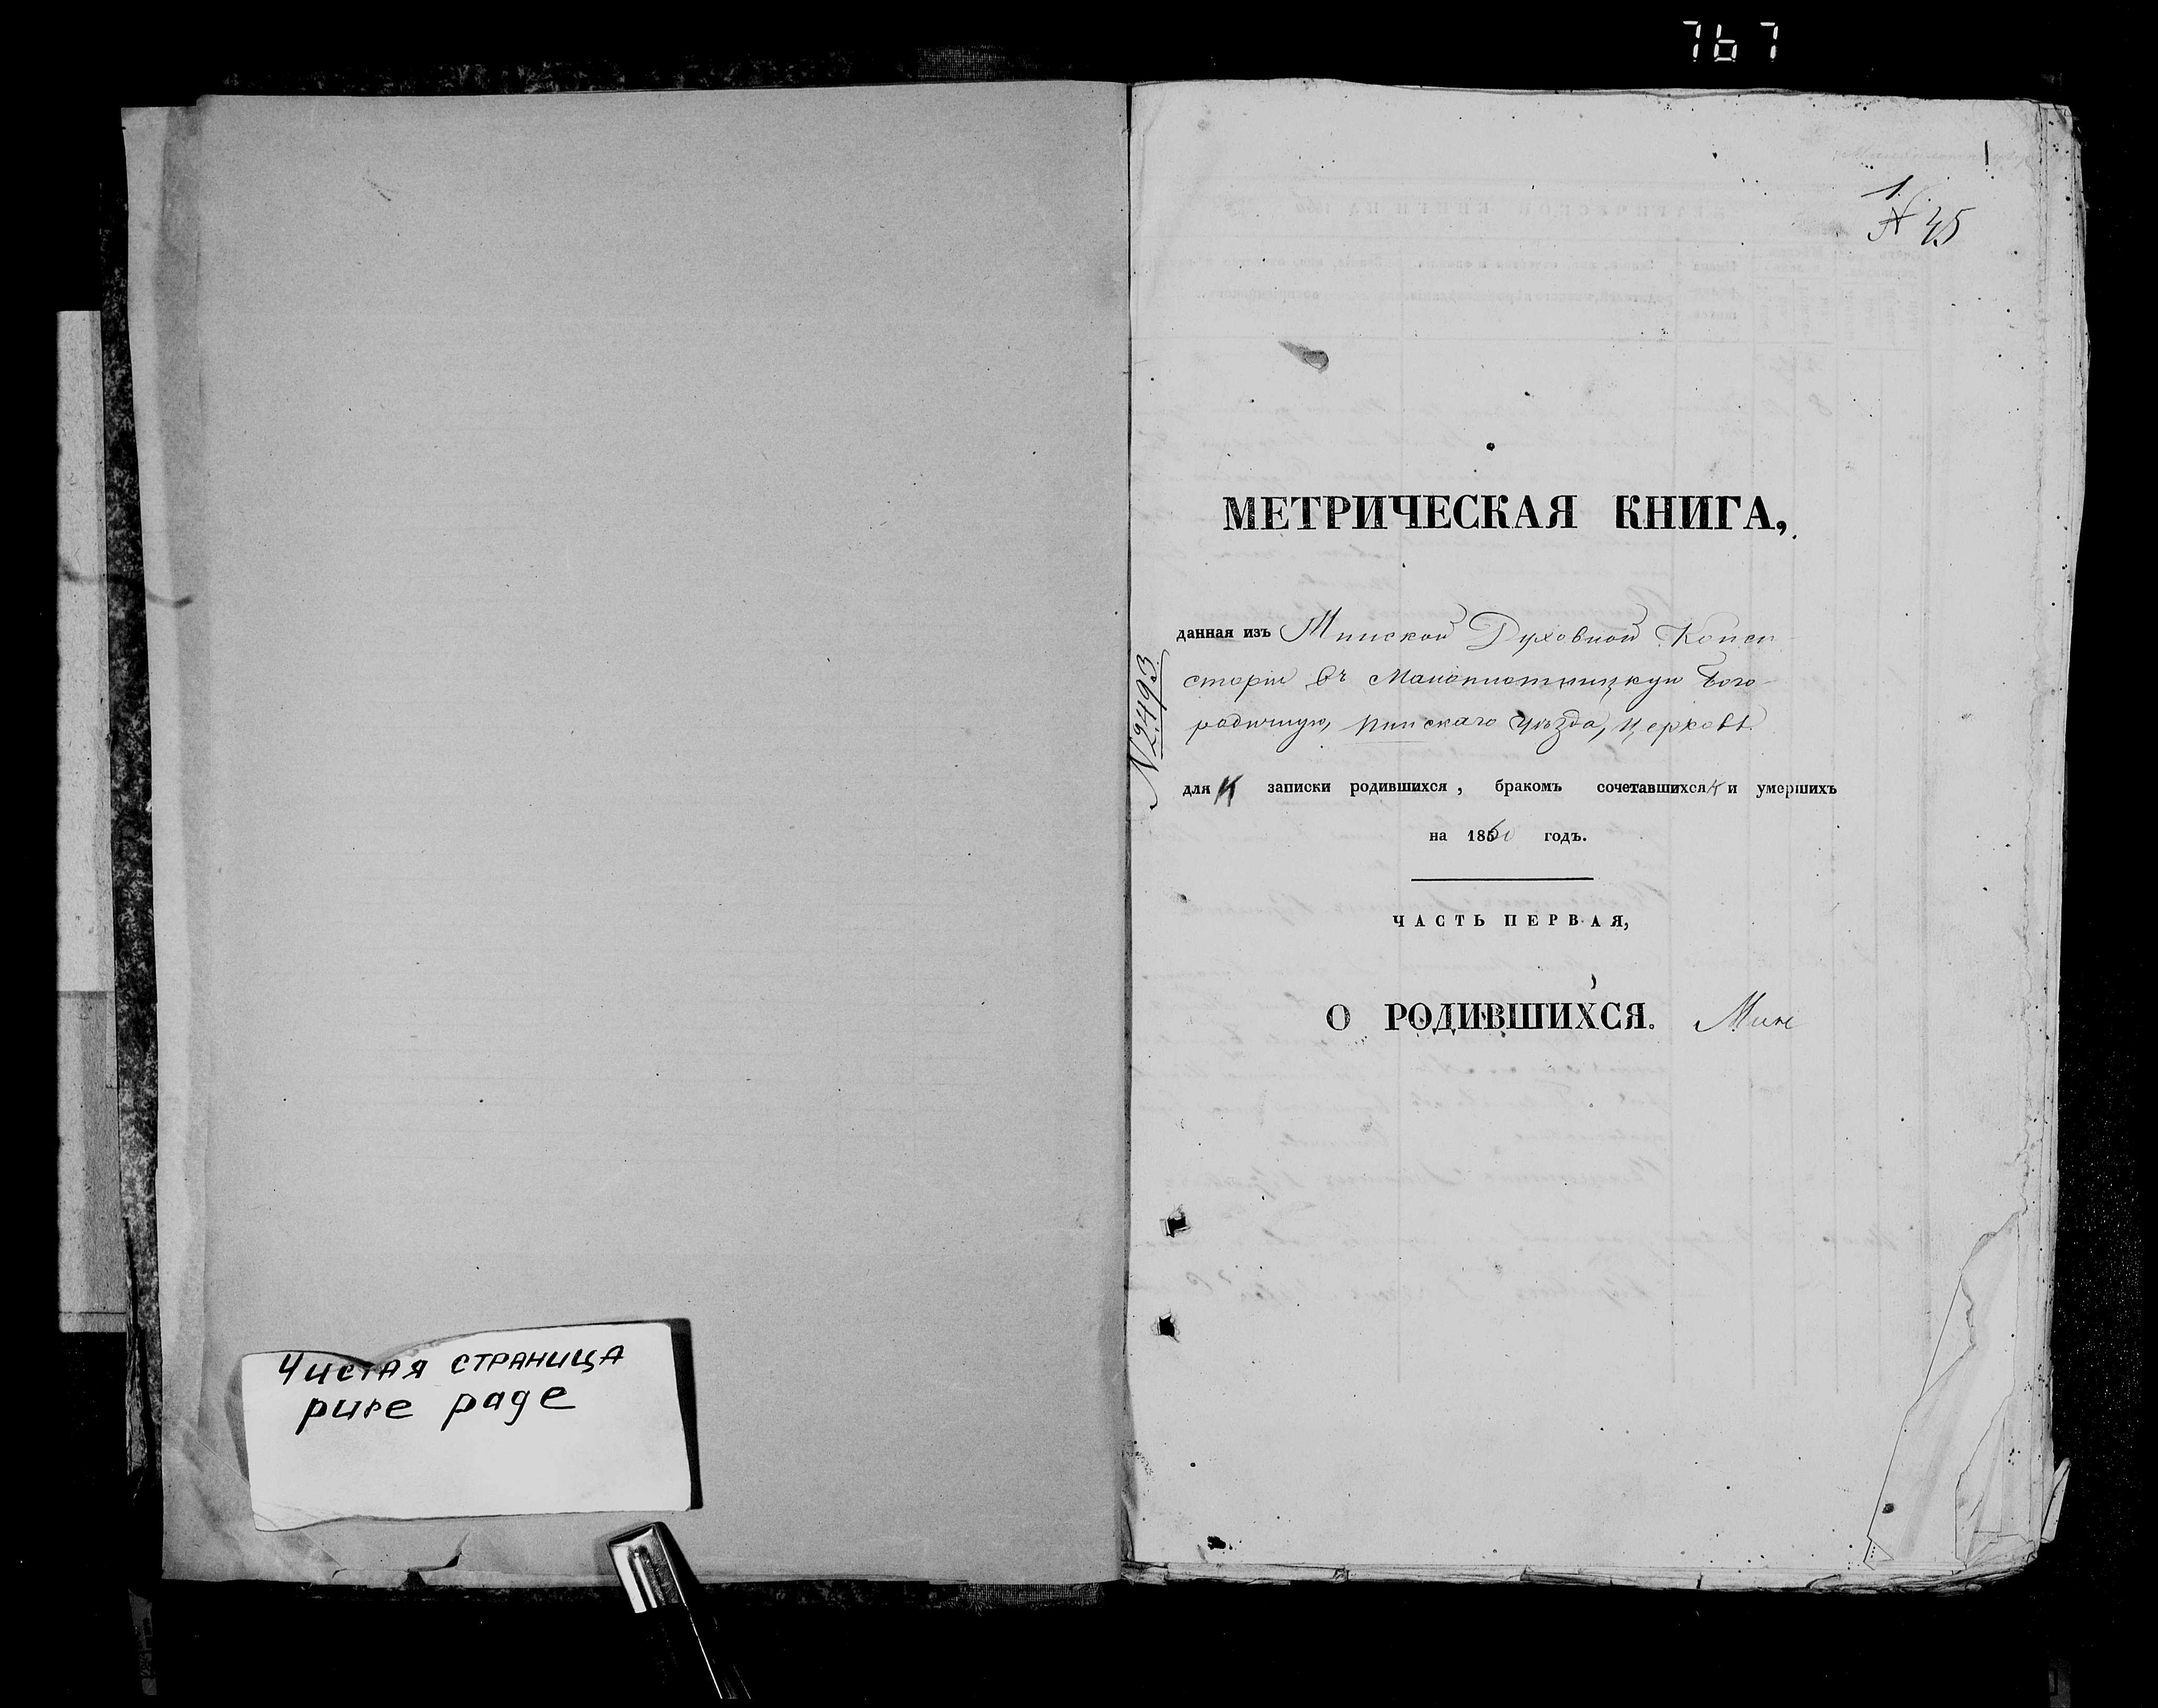 767
1
1
№ 45
МЕТРИЧЕСКАЯ КНИГА,
данная изъ Минской Духовной Конси
сторіи въ Малоплотницкую Бого-
родичную, Пинскаго уѣзда, церковь
№ 2493
для записки родившихся, бракомъ сочетавшихся и умершихъ
на 1860 годъ.
ЧАСТЬ ПЕРВАЯ,
О РОДИВШИХСЯ. Мин
Чистая страница
pure page